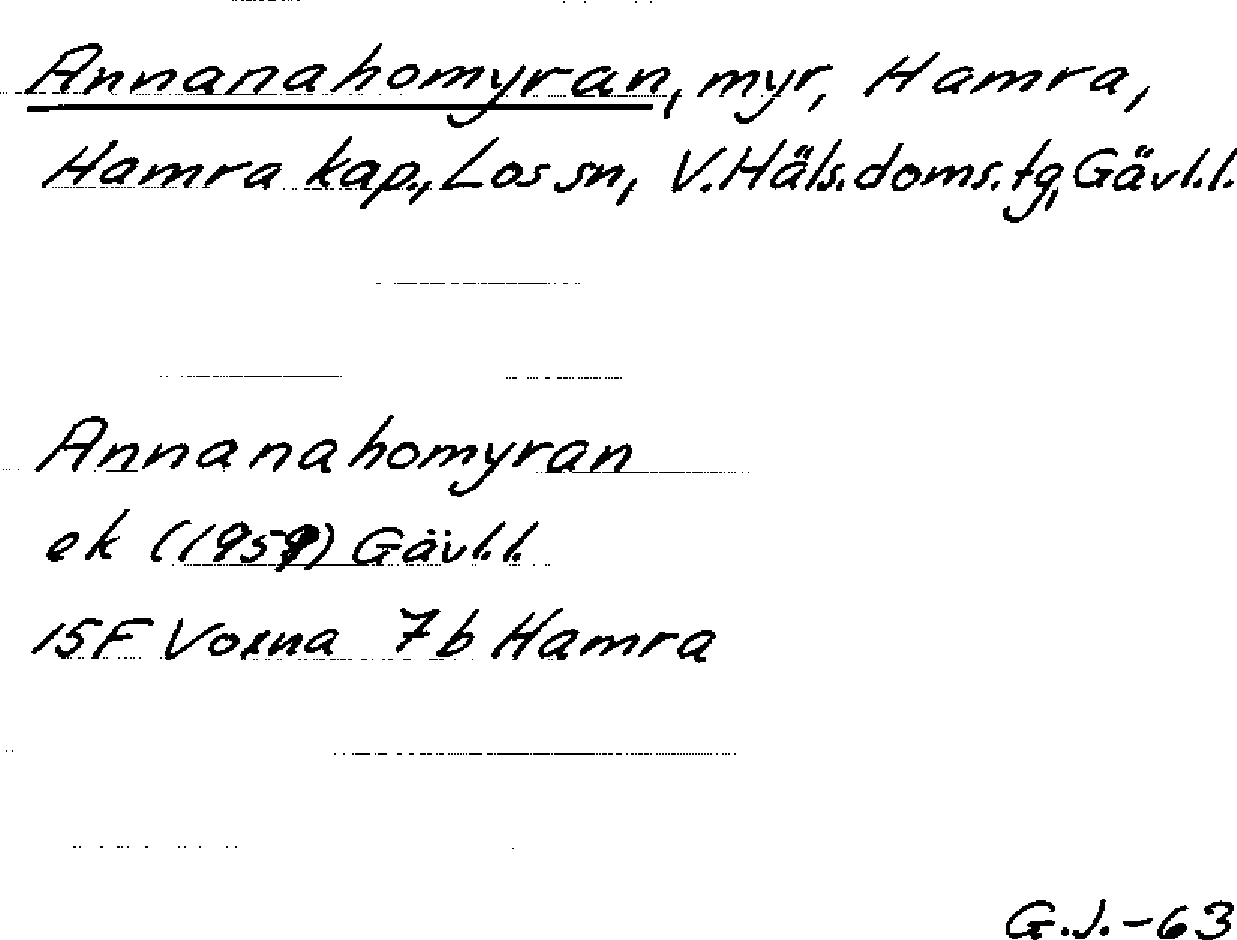 Annanahomyran, myr, Hamra,
Hamra kap., Los sn, V. Häls. doms. tg, Gävl. l.
Annanahomyran
ek (1959) Gävl. l.
15F Voxna 7b Hamra
G.J. -63